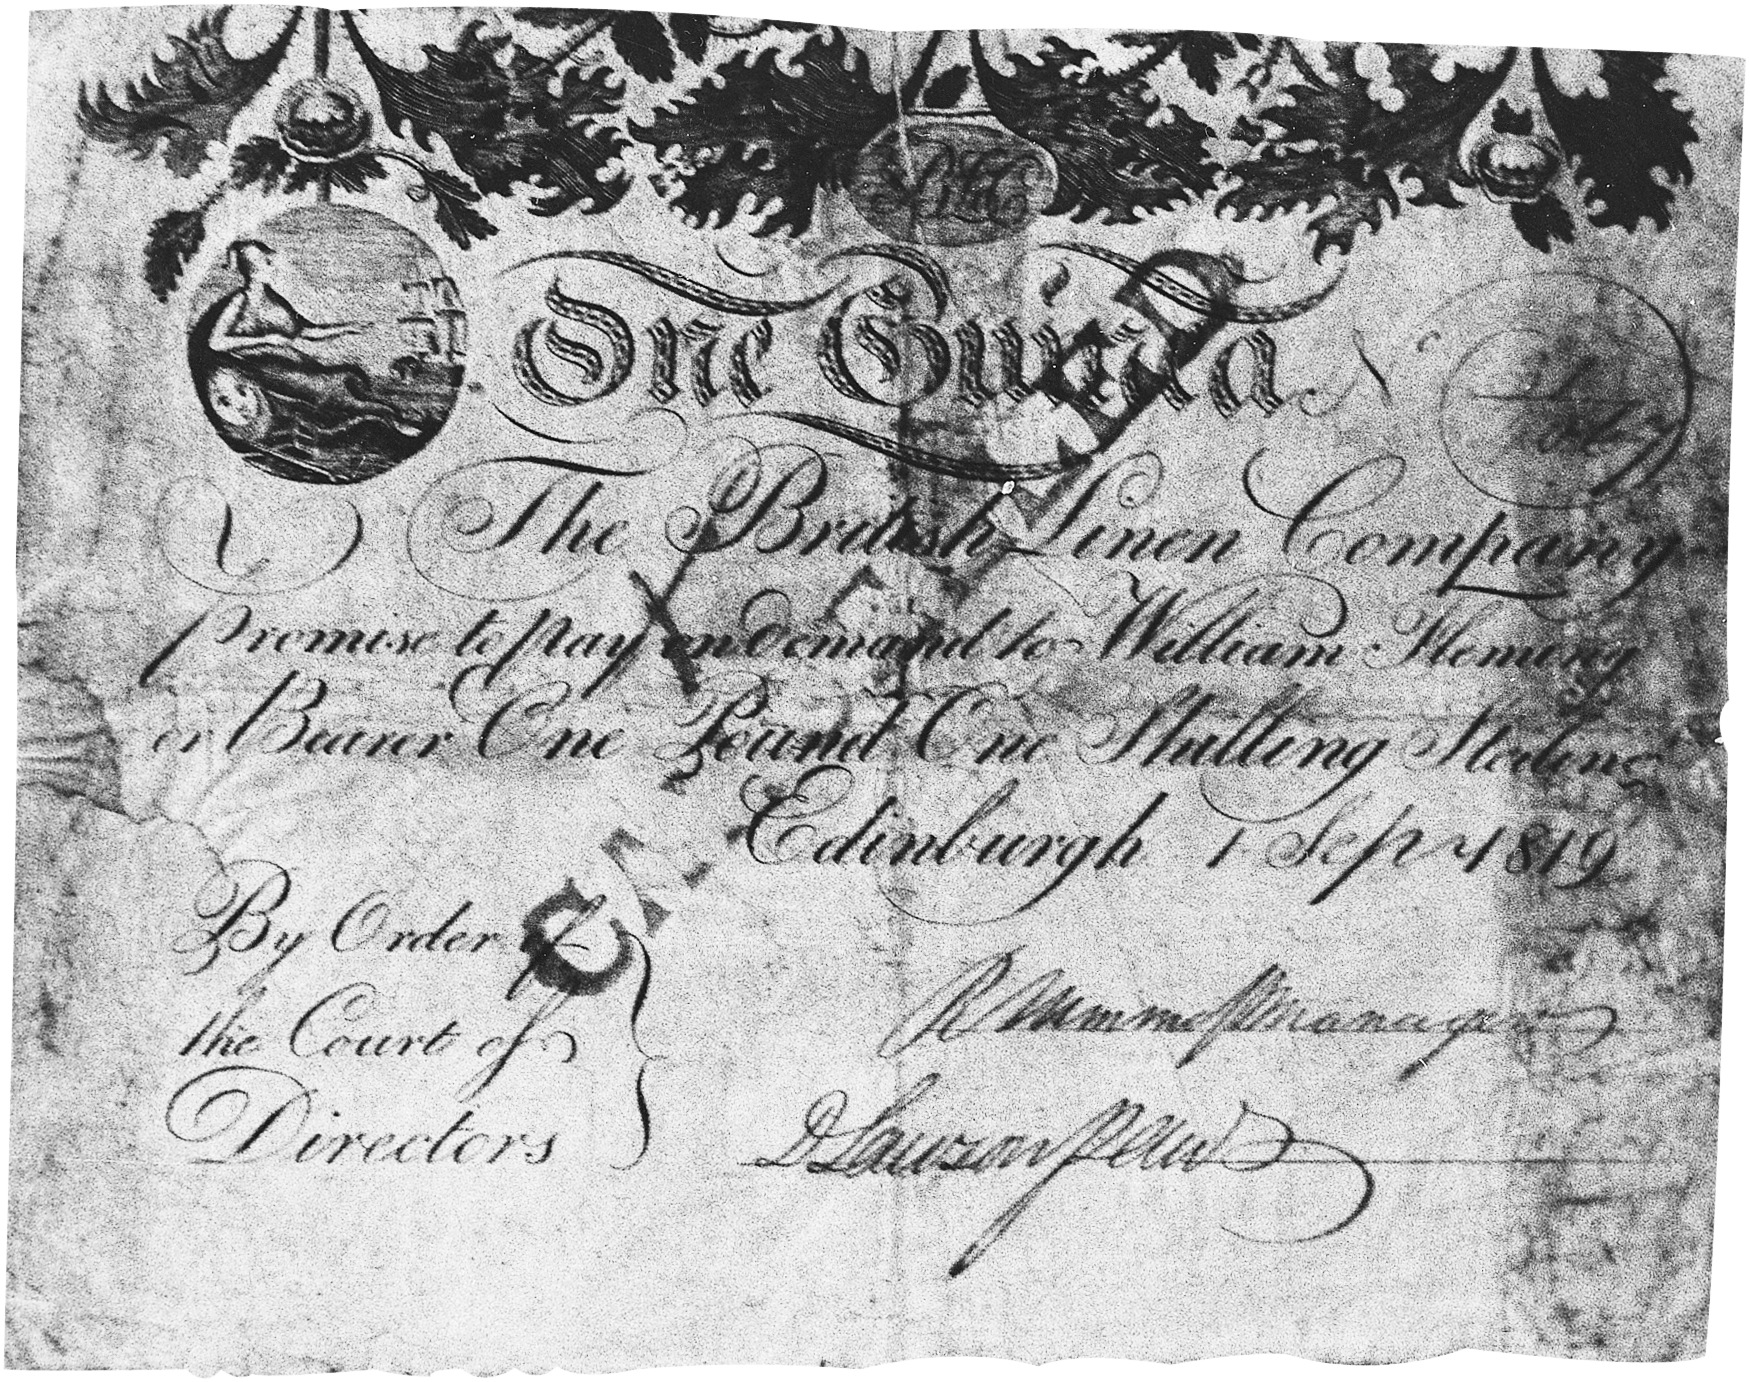 BLC
One Guinea
The British Linen Company
promise to pay on demand to William Fleming
or Bearer One Pound One Shilling Sterling
Edinburgh 1 Sep 1819
By Order of
the Court of
Directors
Manager
D Lawson